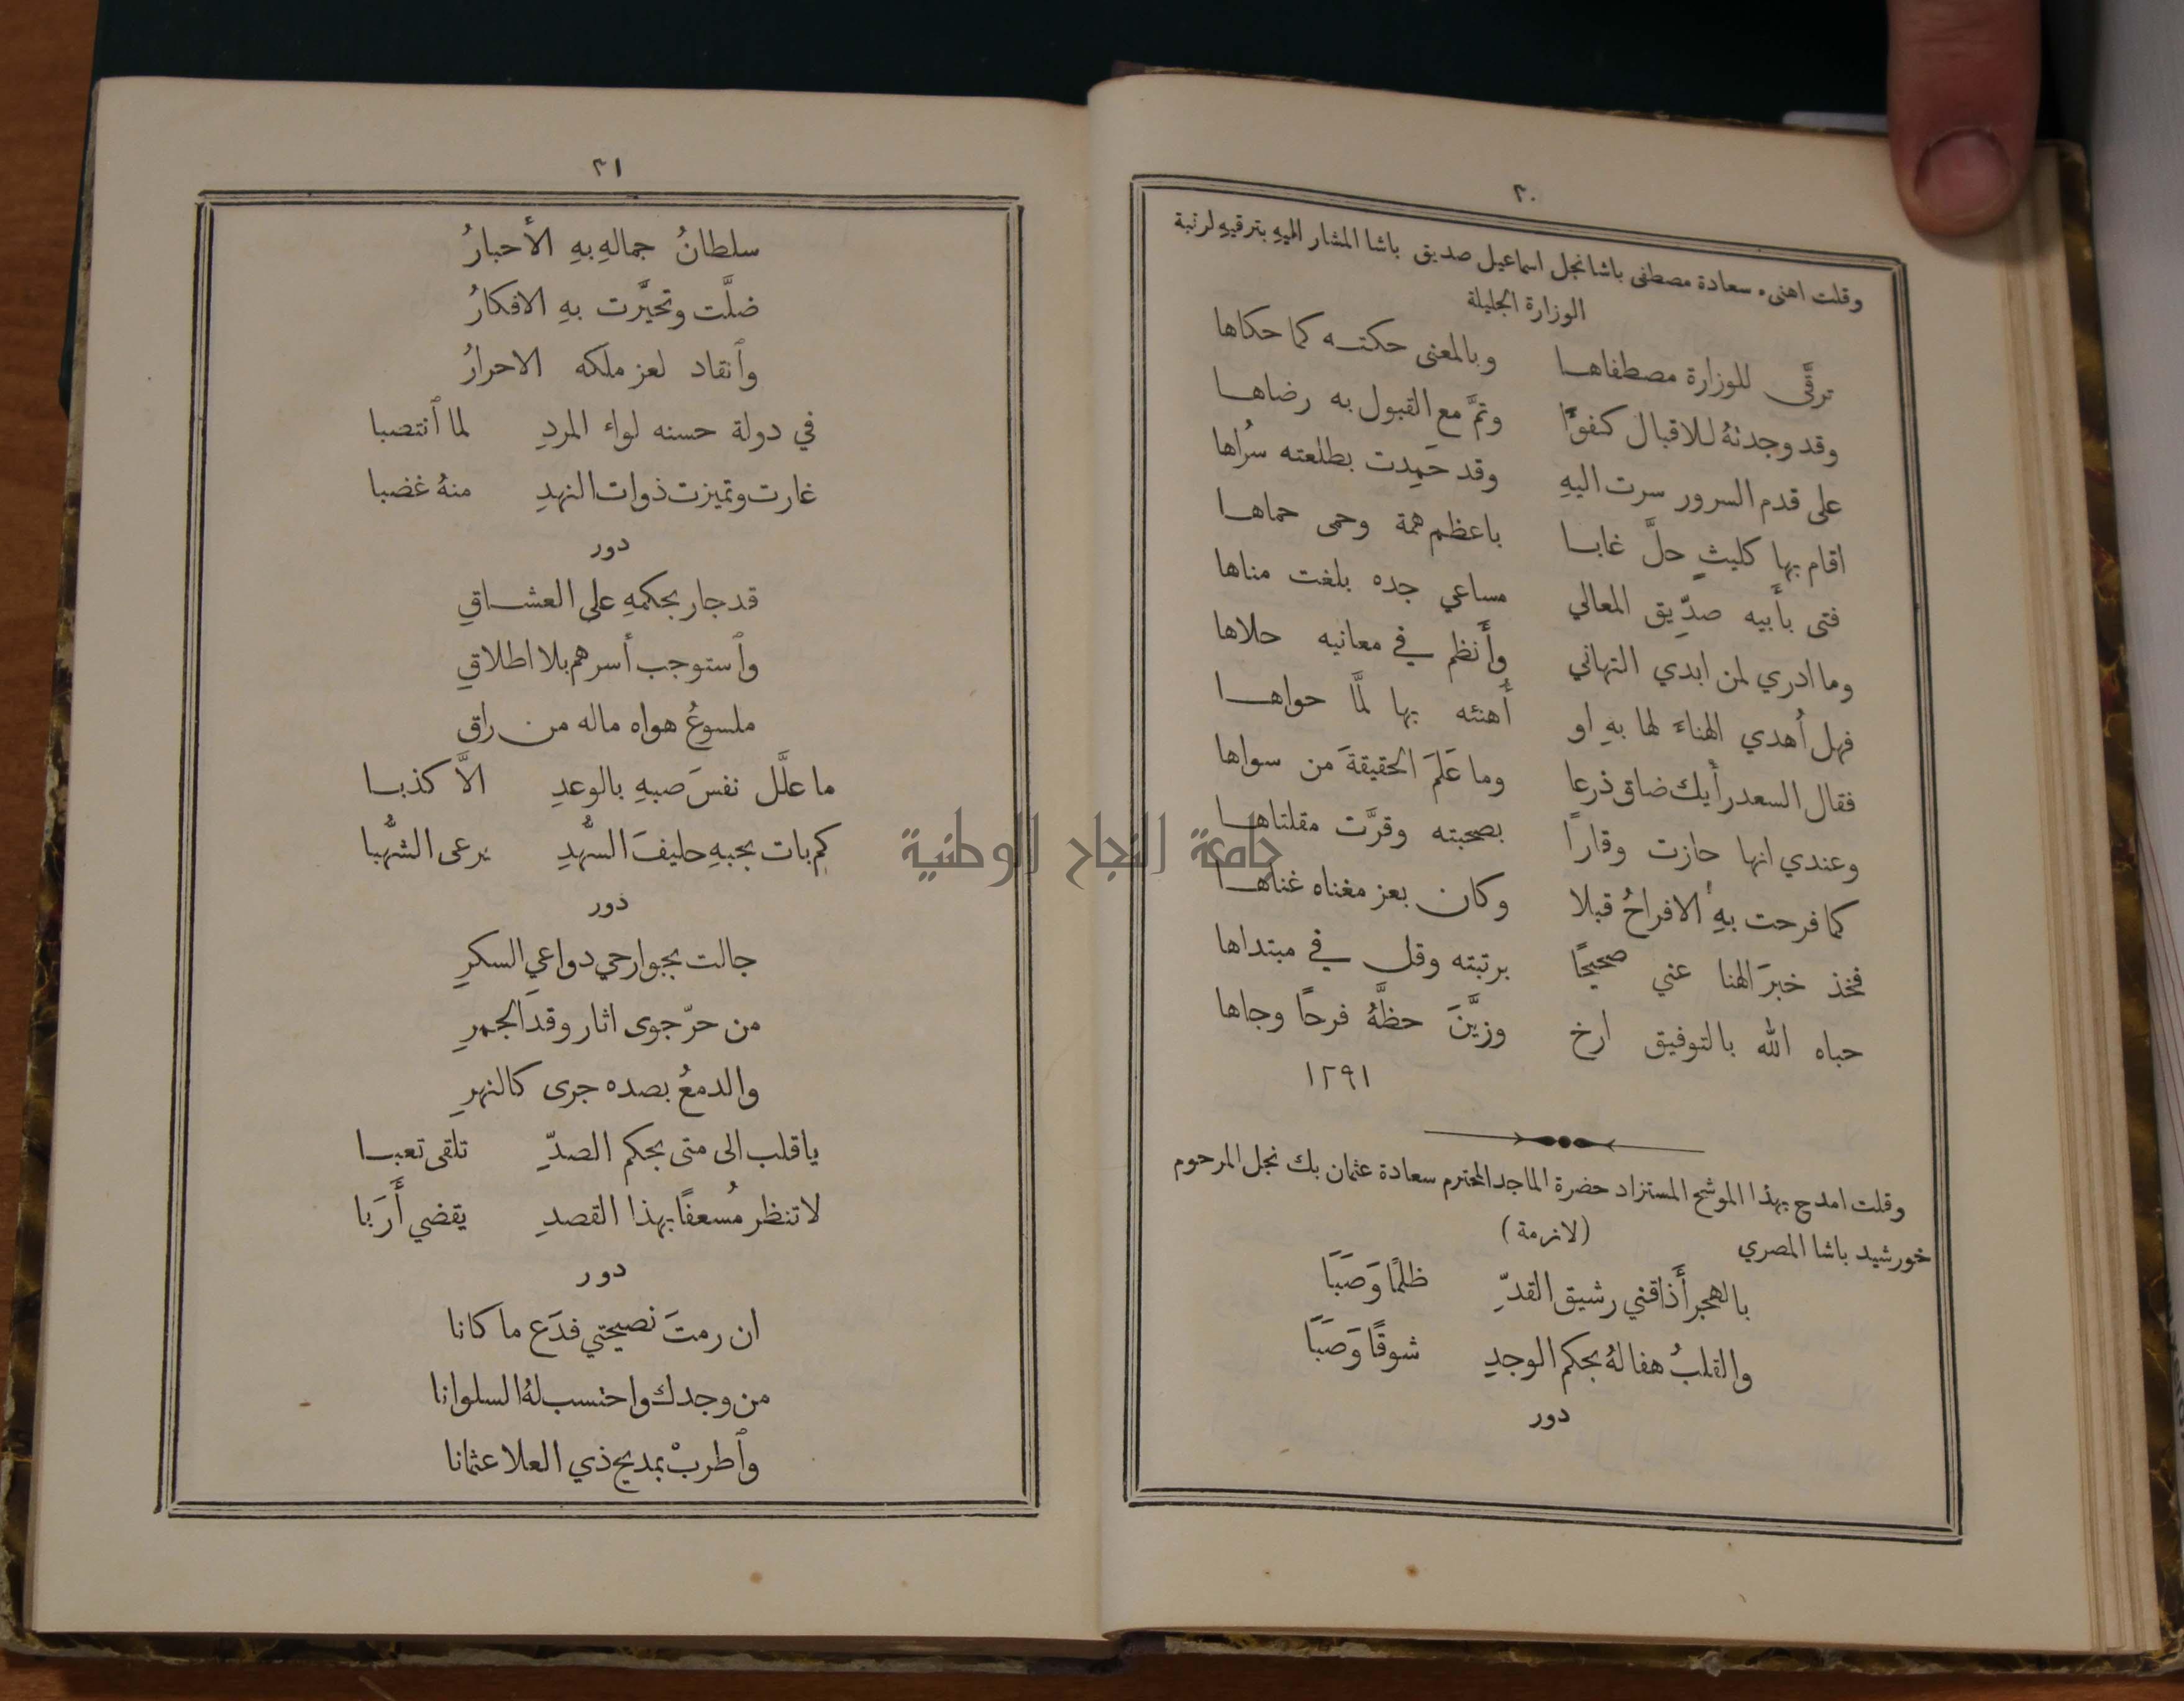 ٢٠
وقلت اهنىء سعادة مصطفى باشا نجل اسماعيل صديق باشا المشار اليهِ بترقيهِ لرتبة
الوزارة الجليلة
ترقَّى للوزارة مصطفاهـا وبالمعنى حكتـه كما حكاها
وقد وجدتهُ للاقبال كفوًا وتمَّ مع القبول به رضاهـا
على قدم السرور سرت اليهِ وقد حَمِدت بطلعته سُراها
اقام بها كليثٍ حلَّ غابـا باعظم همة وحمى حماهـا
فتى بأَبيه صدِّيق المعالي مساعي جده بلغت مناها
وما ادري لمن ابدي التهاني وأَنظم في معانيه حلاها
فهل أُهدي الهناءَ لها بهِ او أُهنئه بها لمَّا حواهـا
فقال السعد رأَيك ضاق ذرعا وما عَلَمَ الحقيقةَ من سواها
وعندي انها حازت وقارًا بصحبته وقرَّت مقلتاهـا
كما فرحت بهِ الافراحُ قبلا وكان بعز مغناه غناهـا
فخذ خبرَ الهنا عني صحيحًا برتبته وقل في مبتداها
حباه الله بالتوفيق ارخ وزيَّنَ حظَّهُ فرحًا وجاها
١٢٩١
وقلت امدح بهذا الموشح المستزاد حضرة الماجد المحترم سعادة عثمان بك نجل المرحوم
خورشيد باشا المصري
(لازمة)
بالهجر أَذاقني رشيق القدِّ ظلمًا وَصَبَا
والقلبُ هفا لهُ بحكم الوجدِ شوقًا وَصَبَا
دور
٢١
سلطانُ جمالهِ بهِ الأحبارُ
ضلَّت وتحيَّرت بهِ الافكارُ
وٱنقاد لعز ملكه الاحرارُ
في دولة حسنه لواء المردِ لما ٱنتصبا
غارت وتميزت ذوات النهدِ منهُ غضبا
دور
قد جار بحكمهِ على العشـاقِ
وٱستوجب أسرهم بلا اطلاقِ
ملسوعُ هواه ماله من راقِ
ما علَّل نفسَ صبهِ بالوعدِ الاَّ كذبـا
كم بات بجبهِ حليفَ السُّهدِ يرعى الشُّهبا
دور
جالت بجوارحي دواعي السكرِ
من حرّ جوى اثار وقد الجمرِ
والدمعُ بصده جرى كالنهرِ
يا قلب الى متى بحكم الصدِّ تلقى تعبـا
لا تنظر مُسعفًا بهذا القصدِ يقضي أَرَبا
دور
ان رمتَ نصيحتي فدَع ما كانا
من وجدك واحتسب لهُ السلوانا
وٱطربْ بمديح ذي العلا عثمانا
جامعة النجاح الوطنية